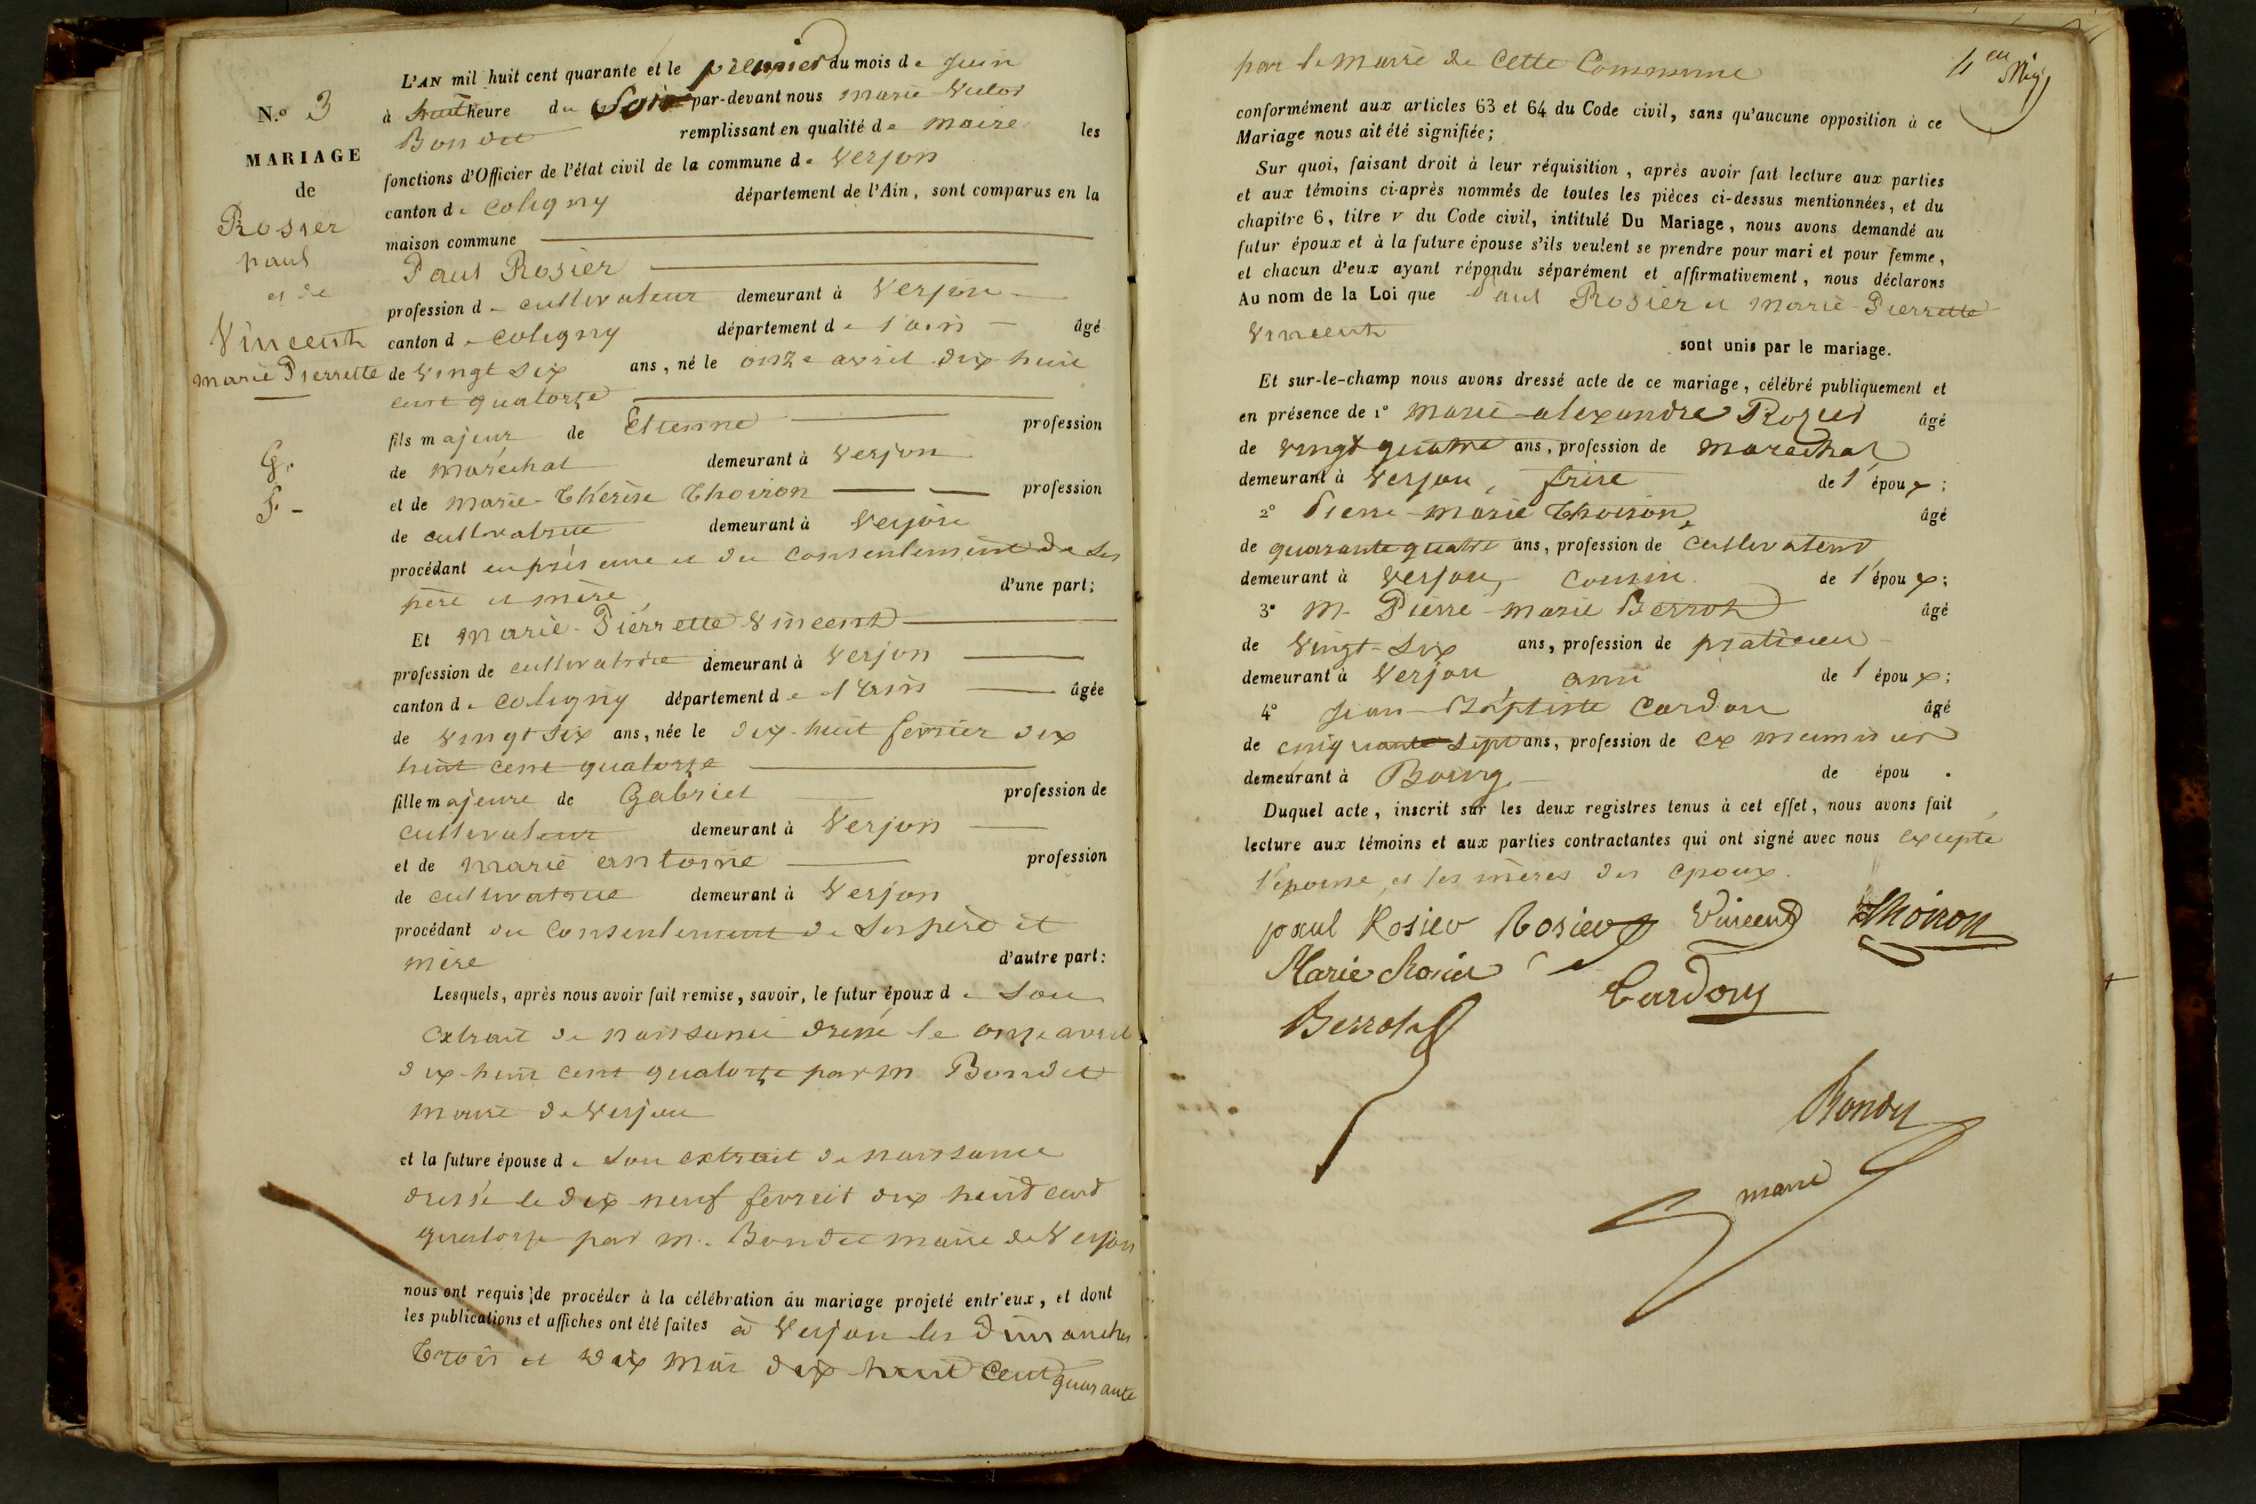 L'AN mil huit cent quarante et le premier du mois de Juin
N.° 3
à huit heure du Soir par-devant nous Marie Victor
Bondet remplissant en qualité de Maire les
MARIAGE
fonctions d'Officier de l'état civil de la commune de Verjon
de
canton de Coligny département de l'Ain, sont comparus en la
Rosier
maison commune
paul
Paul Rosier
et de
profession de cultivateur demeurant à Verjon
Vincent
canton de Coligny département de l'ain âgé
Marie Pierrette
de vingt six ans, né le onze avril dix huit
cent quatorze
fils majeur de Etienne profession
G.
de maréchal demeurant à Verjon
F. -
et de Marie-Thérèse Thoiron profession
de cultivatrice demeurant à Verjon
procédant en présence et du consentement de ses
père et mère d'une part;
Et Marie-Pierrette Vincent
profession de cultivatrice demeurant à Verjon
canton de Coligny département de l'Ain âgée
de vingt six ans, née le dix-huit février dix
huit cent quatorze
fille majeure de Gabriel profession de
cultivateur demeurant à Verjon
et de Marie antoine profession
de cultivatrice demeurant à Verjon
procédant du consentement de ses père et
mère d'autre part:
Lesquels, après nous avoir fait remise, savoir, le futur époux de son
extrait de naissance dressé le onze avril
dix-huit cent quatorze par M Bondet
maire de Verjon
et la future épouse de son extrait de naissance
dressé le dix neuf février dix huit cent
quatorze par M. Bondet maire de Verjon
nous ont requis de procéder à la célébration du mariage projeté entr'eux, et dont
les publications et affiches ont été faites à Verjon les dimanches
trois et dix mai dix huit cent quarante
par le Maire de cette Commune
conformément aux articles 63 et 64 du Code civil, sans qu'aucune opposition à ce
Mariage nous ait été signifiée;
Sur quoi, faisant droit à leur réquisition, après avoir fait lecture aux parties
et aux témoins ci-après nommés de toutes les pièces ci-dessus mentionnées, et du
chapitre 6, titre V du Code civil, intitulé Du Mariage, nous avons demandé au
futur époux et à la future épouse s'ils veulent se prendre pour mari et pour femme,
et chacun d'eux ayant répondu séparément et affirmativement, nous déclarons
Au nom de la Loi que Paul Rosier et Marie-Pierrette
Vincent sont unis par le mariage.
Et sur-le-champ nous avons dressé acte de ce mariage, célébré publiquement et
en présence de 1° Marie-alexandre Rosier âgé
de vingt quatre ans, profession de maréchal
demeurant à Verjon, frère de l'époux;
2° Pierre-Marie Thoiron, âgé
de quarante quatre ans, profession de cultivateur
demeurant à Verjon, cousin de l'époux;
3° M. Pierre-Marie Berrot âgé
de vingt-six ans, profession de praticien
demeurant à Verjon ami de l'époux;
4° Jean-Baptiste Cardon âgé
de cinquante sept ans, profession de ex menuisier
demeurant à Bourg de épou .
Duquel acte, inscrit sur les deux registres tenus à cet effet, nous avons fait
lecture aux témoins et aux parties contractantes qui ont signé avec nous excepté
l'épouse, et les mères des époux.
paul Rosier Rosier Vincent Thoiron
Marie Rosier
Cardon
Berrot
Bondet
maire